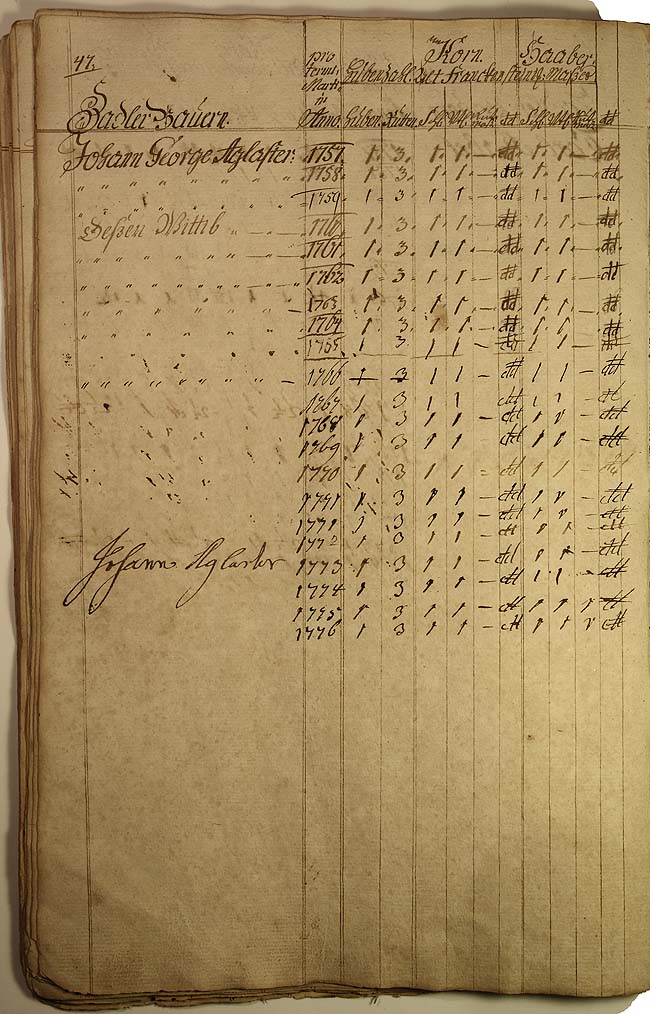 47.
pro termi. Martini Anno
Korn. Haaber.
Hubbenzahl. Alt Franckensteiner Maßer
Zadler Bauern. Hubben. Ruten. Schl. Vtl. dd Schl. Vtl. dd
Johann George Aglaster: 1757. 1. 3. 1. 1. — dd. 1. 1. — dd.
" " " " " " " 1758. 1. 3. 1. 1. — dd. 1. 1. — dd.
" " " " " " " 1759. 1 3 1 1 — dd 1 1 — dd
Deßen Wittib " — — 1760. 1 3. 1 1. — dd 1. 1. — dd
" " " " " " " 1761. 1. 3. 1. 1. — dd. 1. 1. — dd.
" " " " " " " 1762 1 3 1 1 — dd 1 1 — dd
" " " " " " " 1763 1. 3. 1. 1. — dd. 1. 1. — dd
" " " " " " " 1764 1. 3. 1. 1. — dd. 1. 1. — dd
1765 1 3 1 1 — dd 1 1 — dd
" " " " " " " — 1766 1 3 1 1 — dd 1 1 — dd
1767 1 3 1 1 dd 1 1 — dd
1768 1 3 1 1 — dd 1 1 — dd
1769 1 3 1 1 dd 1 1 — dd
1770 1 3 1 1 — dd 1 1 — dd
1771 1 3 1 1 — dd 1 1 — dd
1771 1 3 1 1 — dd 1 1 — dd
1772 1 3 1 1 — dd 1 1 — dd
Johann Aglaster 1773 1 3 1 1 — dd 1 1 — dd
1774 1 3 1 1 — dd 1 1 — dd
1775 1 3 1 1 — dd 1 1 1 dd
1776 1 3 1 1 — dd 1 1 1 dd